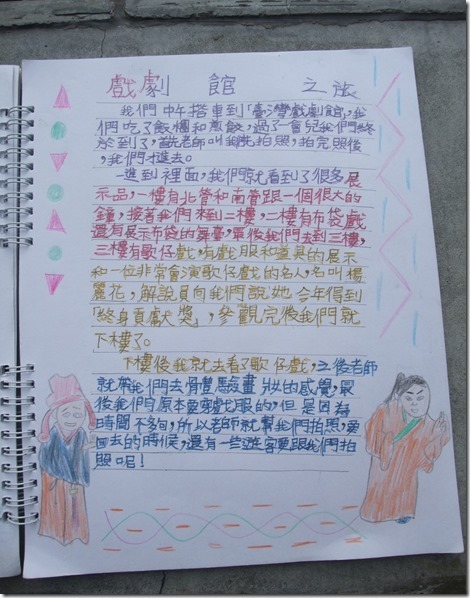 戲劇館 之旅
我們中午搭車到「臺灣戲劇館」,我
們吃了飯糰和煎餃,過了一會兒我們終
於到了,首先老師叫我先拍照,拍完照後
,我們才進去。
一進到裡面,我們就看到了很多展
示品,一樓有北管和南管跟一個很大的
鐘,接著我們來到二樓,二樓有布袋戲
還有展示布袋的舞臺,最後我們去到三樓,
三樓有歌仔戲,有戲服和道具的展示
和一位非常會演歌仔戲的名人,名叫楊
麗花,解說員向我們說她今年得到
「終身貢獻獎」,參觀完後我們就
下樓了。
下樓後我就去看了歌仔戲,之後老師
就帶我們去體驗畫妝的感覺,最
後我們原本要穿戲服的,但是因為
時間不夠,所以老師就幫我們拍照,要
回去的時候,還有一些遊客要跟我們拍
照呢!